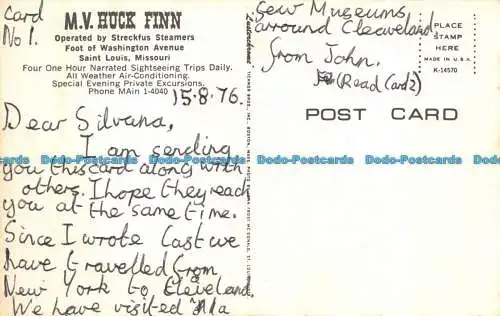 Card
No 1.
M.V. HUCK FINN
Operated by Streckfus Steamers
Foot of Washington Avenue
Saint Louis, Missouri
Four One Hour Narrated Sightseeing Trips Daily.
All Weather Air-Conditioning.
Special Evening Private Excursions.
Phone MAin 1-4040
15.8.76.
Dear Silvana,
I am sending
you this card along with
others. I hope they reach
you at the same time.
Since I wrote last we
have travelled from
New York to Cleveland.
We have visited
few Museums
around Cleaveland
from John.
(Read Card 2)
PLACE
STAMP
HERE
MADE IN U.S.A.
K-14570
POST CARD
Dodo-Postcards Dodo-Postcards Dodo-Postcards Dodo-Postcards Dodo-Postcards